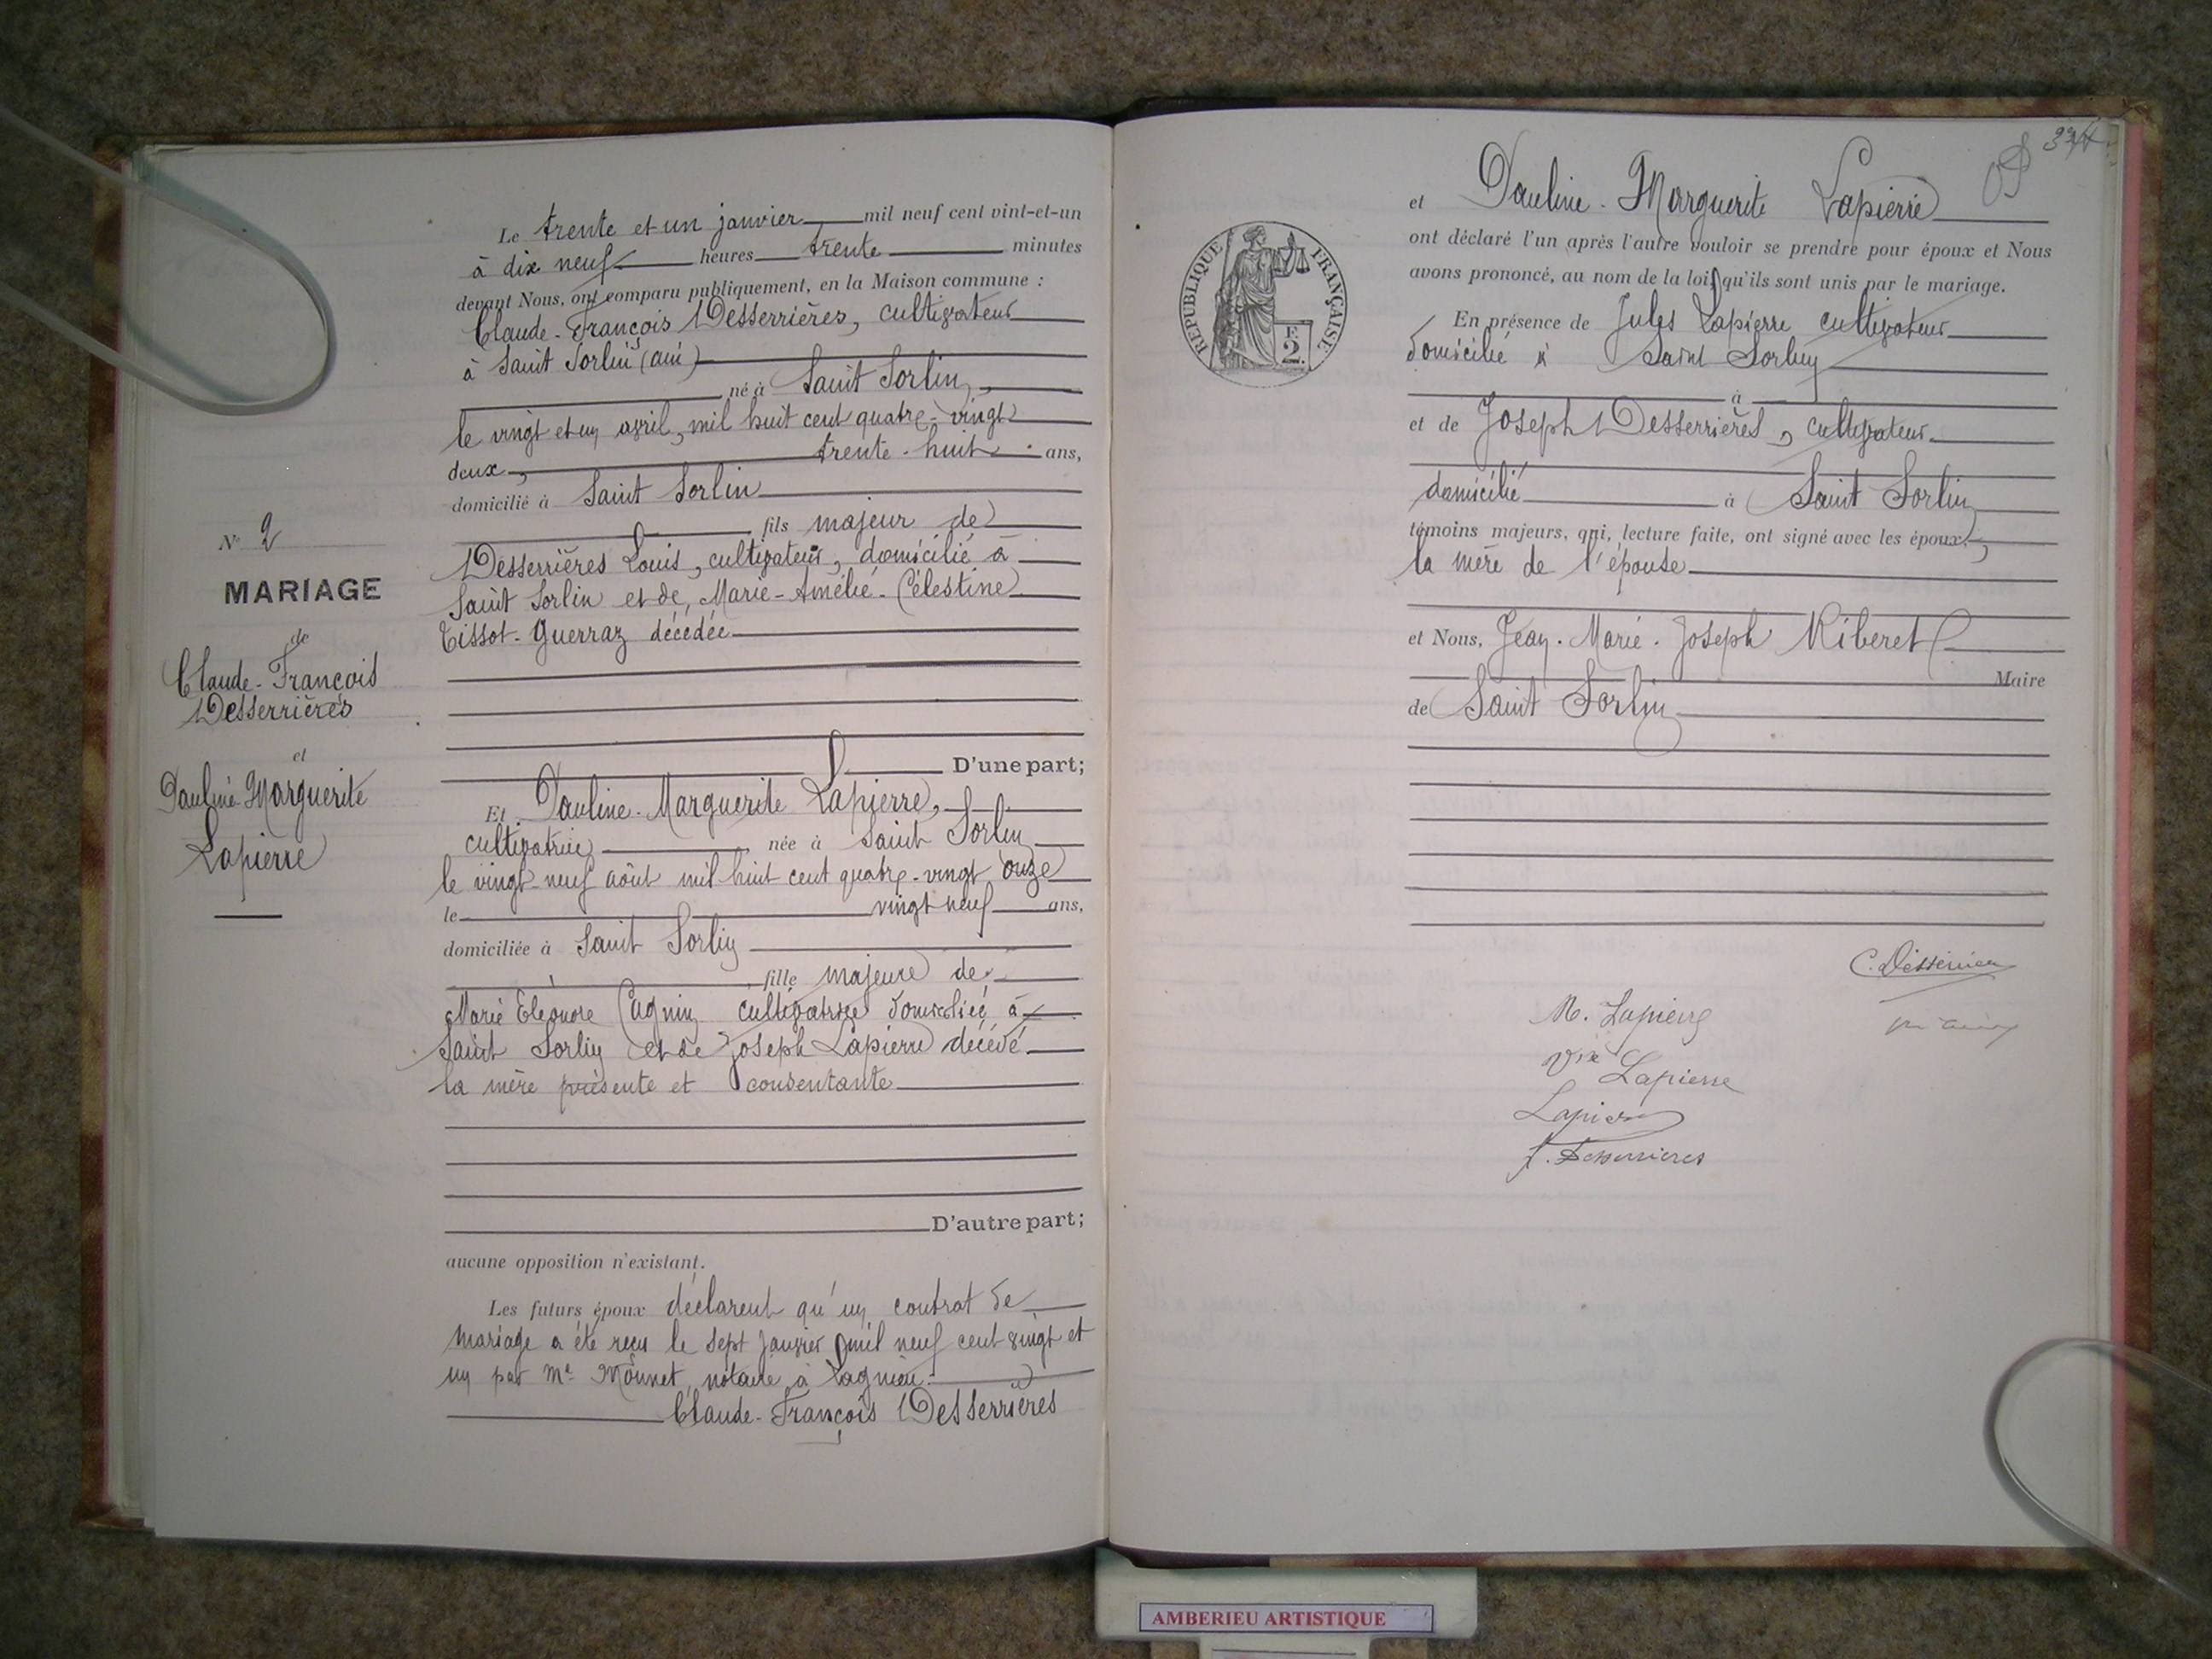 N° 2
MARIAGE
de
Claude-François
Desserrières
et
Pauline Marguerite
Lapierre
Le trente et un janvier mil neuf cent vint-et-un
à dix neuf heures trente minutes
devant Nous, ont comparu publiquement, en la Maison commune :
Claude-François Desserrières, cultivateur
à Saint Sorlin (ain)
né à Saint Sorlin,
le vingt et un avril, mil huit cent quatre-vingt
deux, trente-huit ans,
domicilié à Saint Sorlin
fils majeur de
Desserrières Louis, cultivateur, domicilié à
Saint Sorlin et de, Marie-Amélie-Célestine
Tissot-Guerraz décédée
D'une part;
Et Pauline-Marguerite Lapierre,
cultivatrice née à Saint Sorlin
le vingt-neuf août mil huit cent quatre-vingt onze
le vingt neuf ans,
domiciliée à Saint Sorlin
fille majeure de
Marie Eléonore Cagnin cultivatrice domiciliée à
Saint Sorlin et de Joseph Lapierre décédé
la mère présente et consentante
D'autre part;
aucune opposition n'existant.
Les futurs époux déclarent qu'un contrat de
mariage a été reçu le sept janvier mil neuf cent vingt et
un par Me Monnet, notaire à Lagnieu
Claude-François Desserrières
et Pauline-Marguerite Lapierre
ont déclaré l'un après l'autre vouloir se prendre pour époux et Nous
avons prononcé, au nom de la loi, qu'ils sont unis par le mariage.
En présence de Jules Lapierre cultivateur
domicilié à Saint Sorlin
à
et de Joseph Desserrières, cultivateur
domicilié à Saint Sorlin
témoins majeurs, qui, lecture faite, ont signé avec les époux,
la mère de l'épouse
et Nous, Jean-Marie-Joseph Riberet
Maire
de Saint Sorlin
RÉPUBLIQUE FRANÇAISE
F.
2.
C. Desserrières
M. Lapierre
Vve Lapierre
Lapierre
J. Desserrieres
AMBERIEU ARTISTIQUE